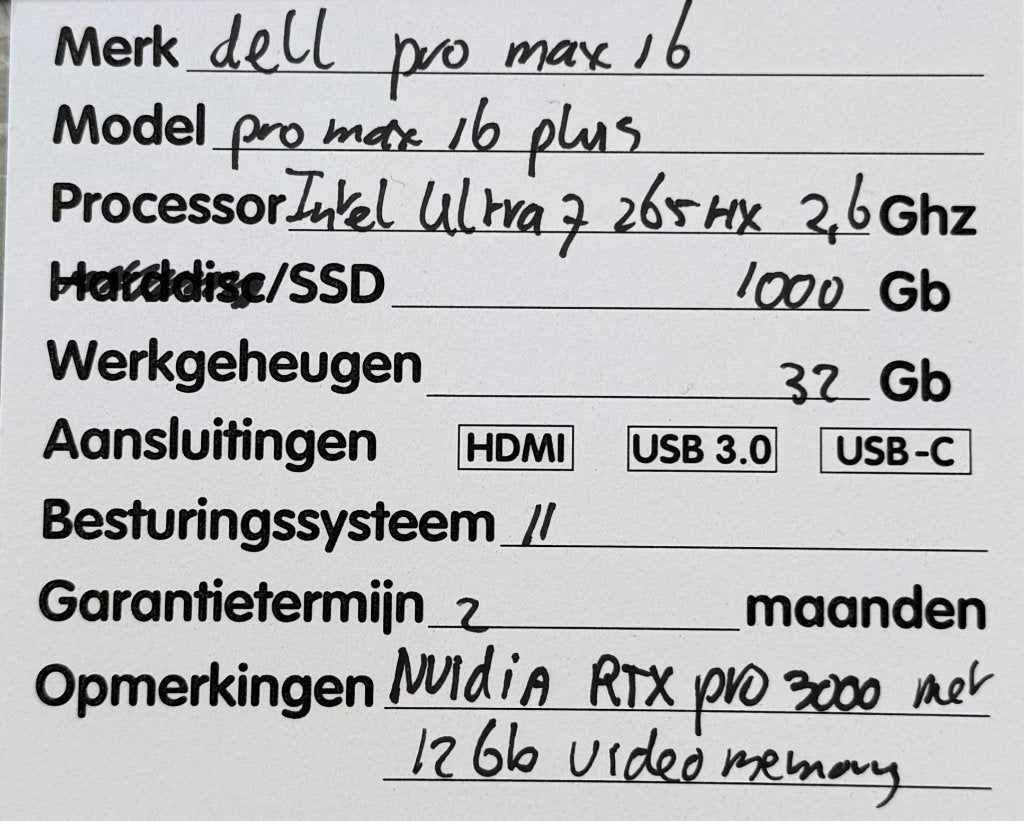 Merk dell pro max 16
Model pro max 16 plus
Processor Intel Ultra 7 265HX 2,6 Ghz
Harddisc/SSD 1000 Gb
Werkgeheugen 32 Gb
Aansluitingen HDMI USB 3.0 USB-C
Besturingssysteem 11
Garantietermijn 2 maanden
Opmerkingen NVidiA RTX pro 3000 met
12 Gb video memory